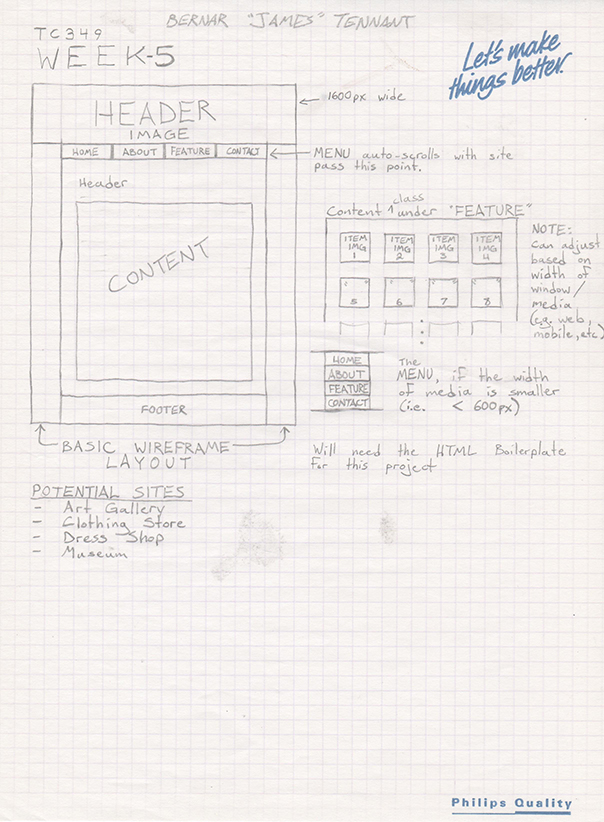 BERNAR "JAMES" TENNANT
TC349
WEEK-5
Let's make
things better.
HEADER
IMAGE
1600px wide
HOME ABOUT FEATURE CONTACT
MENU auto-scrolls with site
pass this point.
Header
CONTENT
FOOTER
BASIC WIREFRAME
LAYOUT
class
Content 1 under "FEATURE"
ITEM IMG 1 ITEM IMG 2 ITEM IMG 3 ITEM IMG 4
5 6 7 8
NOTE:
Can adjust
based on
width of
window/
media
(e.g. web,
mobile, etc.)
HOME
ABOUT
FEATURE
CONTACT
The
MENU, if the width
of media is smaller
(i.e. < 600px)
Will need the HTML Boilerplate
for this project
POTENTIAL SITES
- Art Gallery
- Clothing Store
- Dress Shop
- Museum
Philips Quality